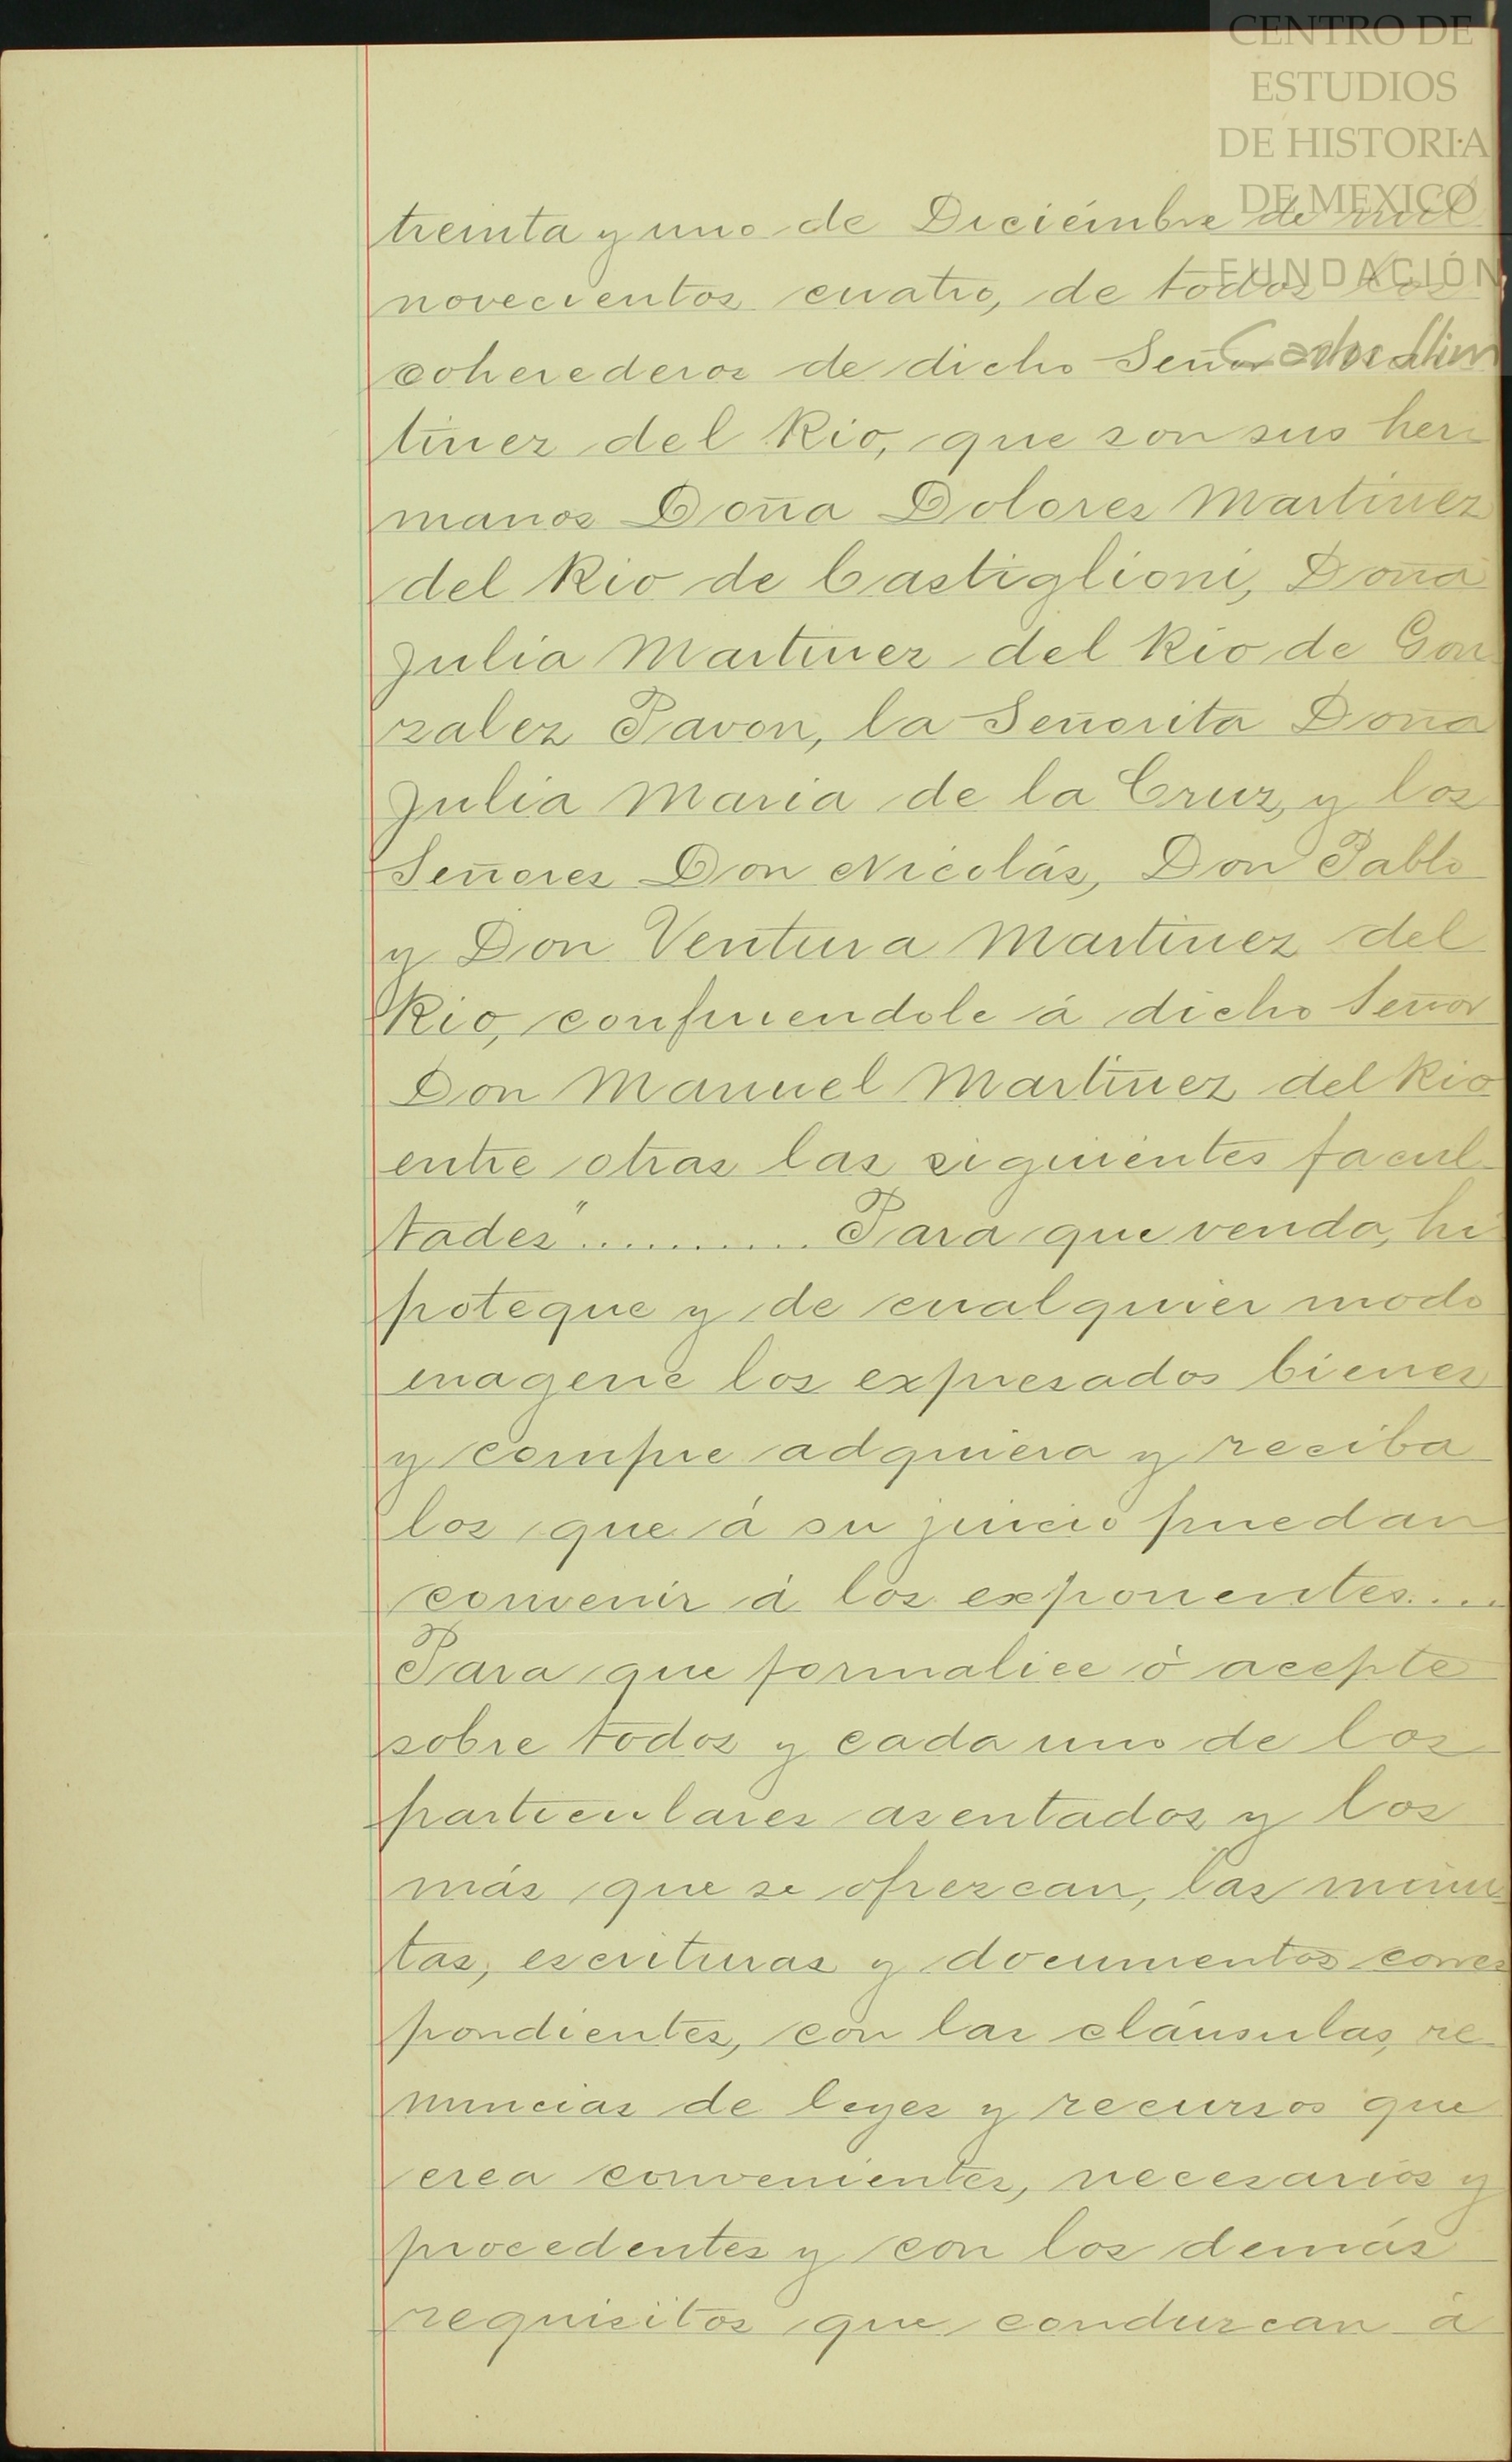 CENTRO DE
ESTUDIOS
DE HISTORIA
DE MEXICO
FUNDACIÓN
Carlos Slim
treinta y uno de Diciembre de mil
novecientos cuatro, de todos los
coherederos de dicho Señor
tinez del Rio, que son sus her-
manos Doña Dolores Martinez
del Rio de Castiglioni, Doña
Julia Martinez del Rio de Gon
zalez Pavon, la Señorita Doña
Julia Maria de la Cruz, y los
Señores Don Nicolás, Don Pablo
y Don Ventura Martinez del
Rio, confiriendole á dicho Señor
Don Manuel Martinez del Rio
entre otras las siguientes facul-
tades".......... Para que venda, hi
poteque y de cualquier modo
enagene los expresados bienes
y compre adquiera y reciba
los que á su juicio puedan
convenir á los exponentes....
Para que formalice ó acepte
sobre todos y cada uno de los
particulares asentados y los
más que se ofrezcan, las minu
tas, escrituras y documentos corres
pondientes, con las cláusulas, re
nuncias de leyes y recursos que
crea convenientes, necesarios y
procedentes y con los demás
requisitos que conduzcan á